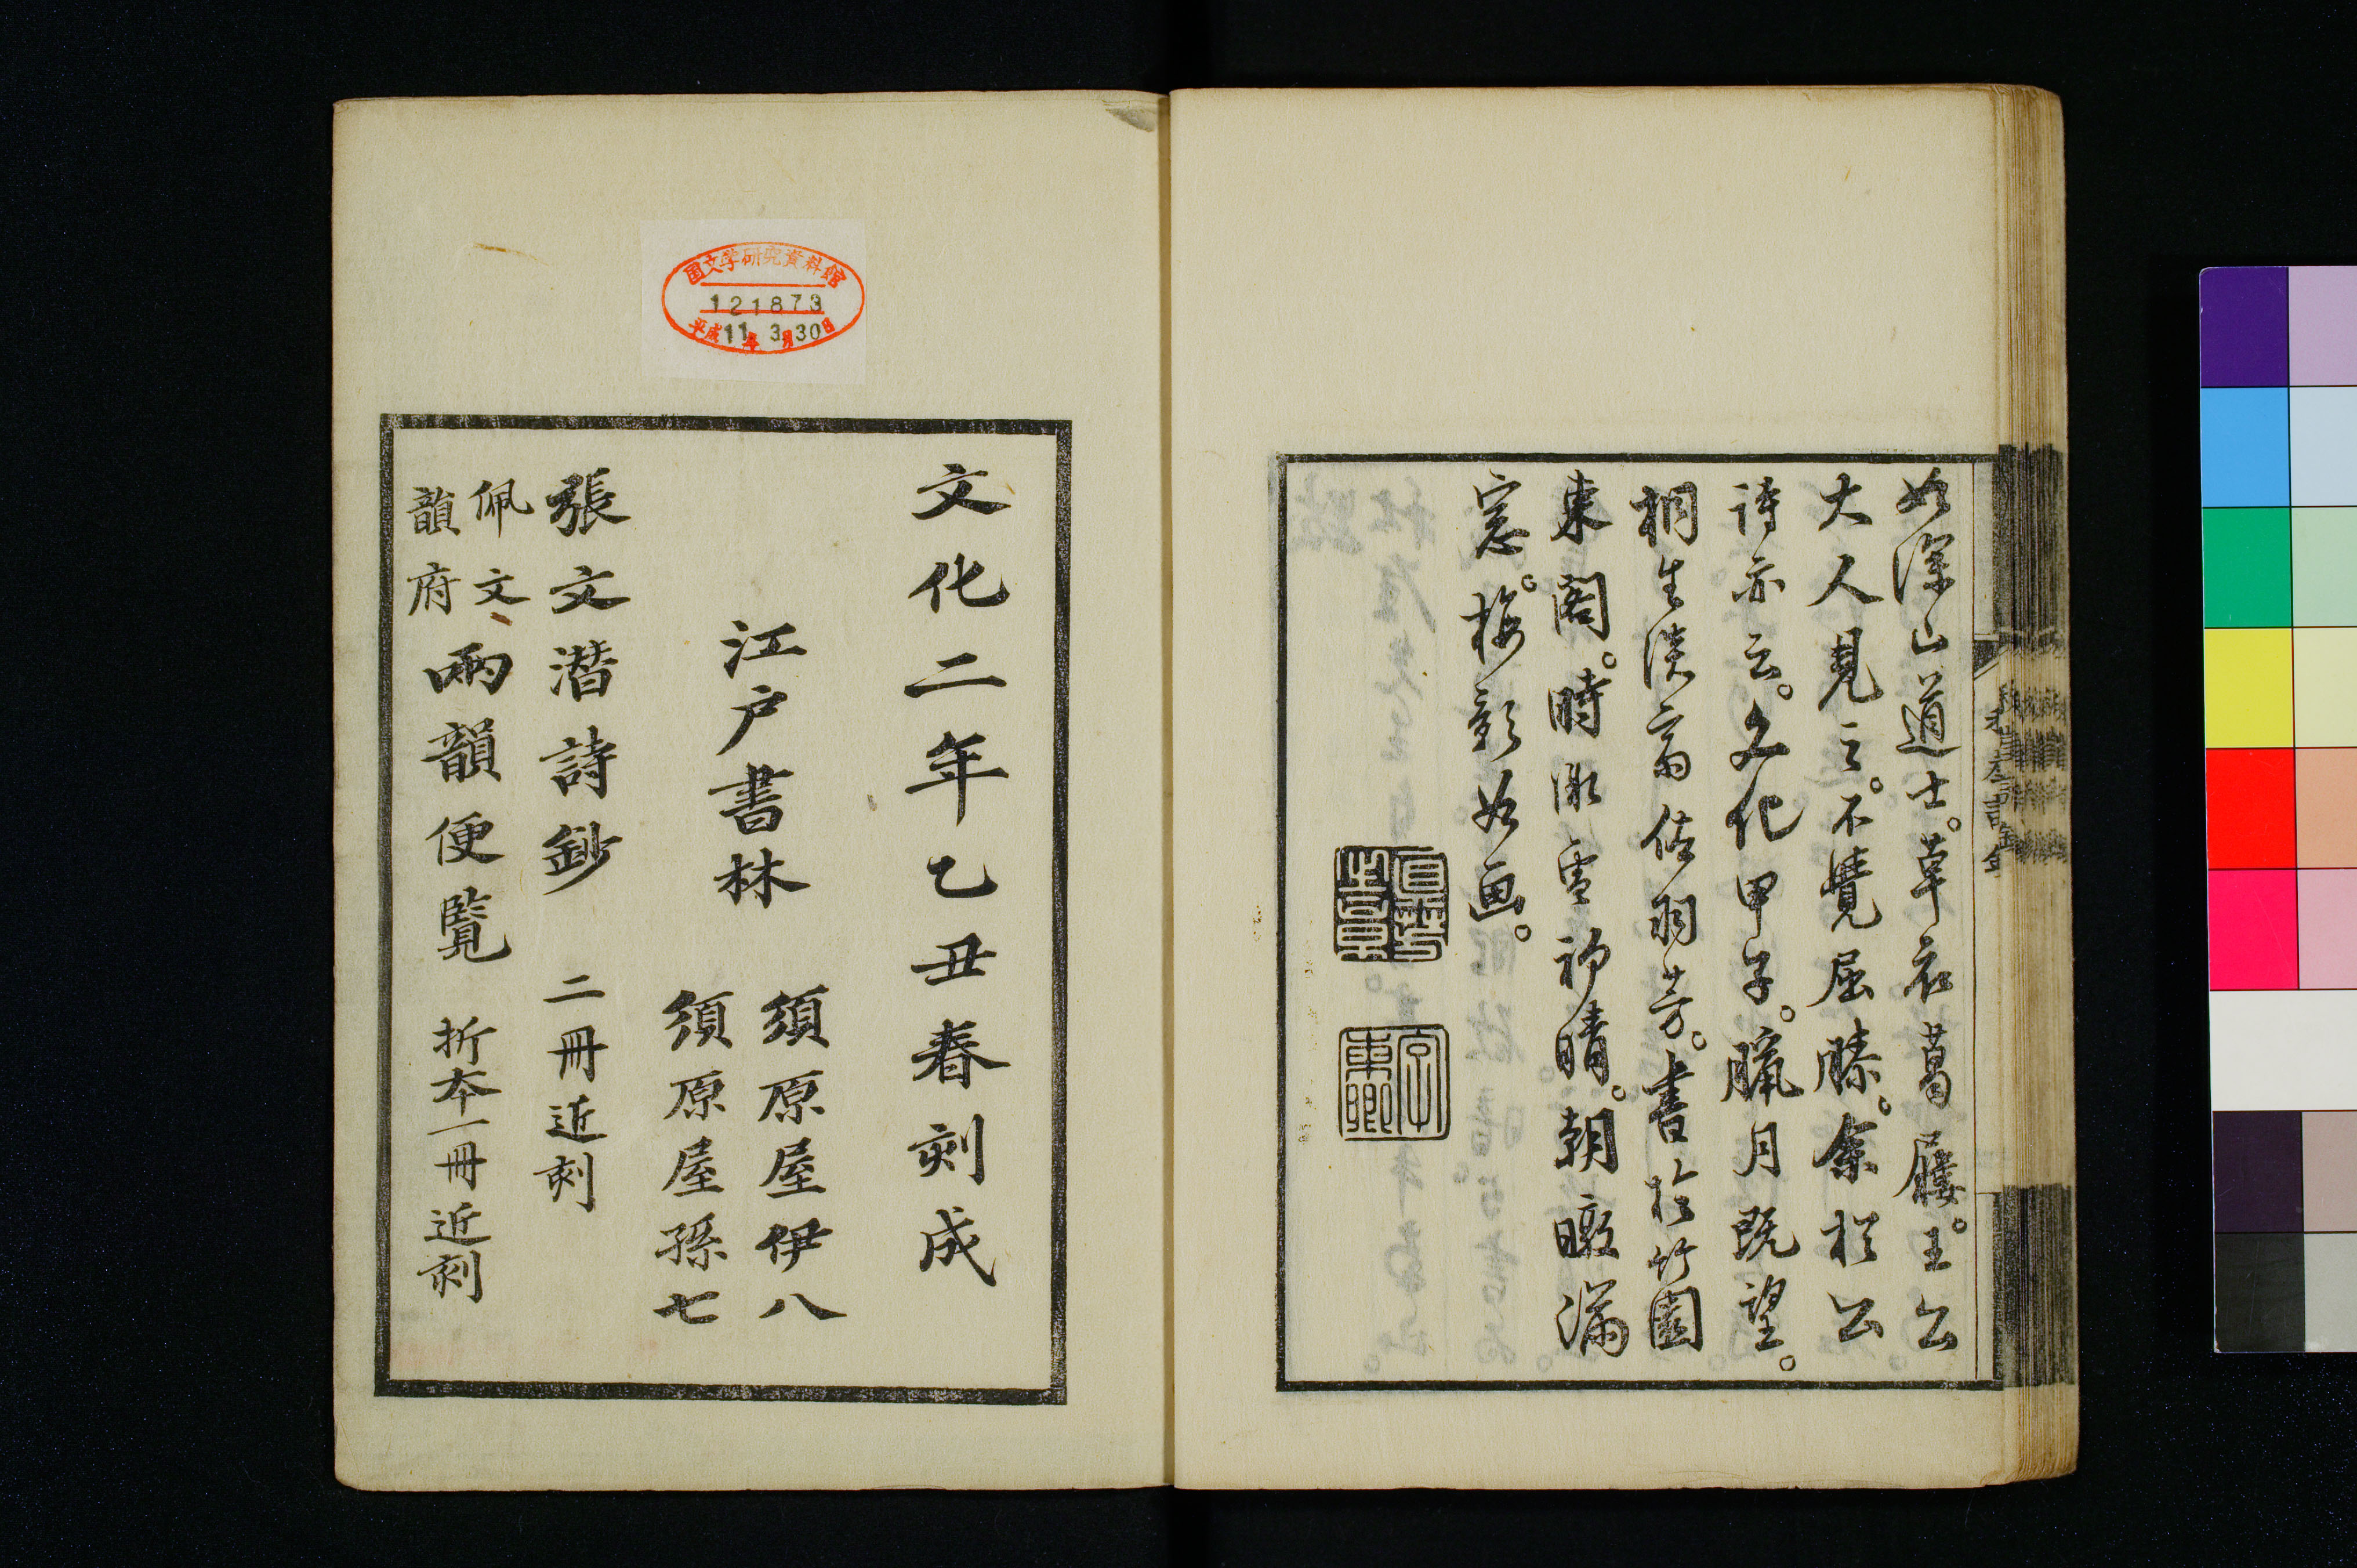 如深山道士。草衣葛屨。王公
大人見之。不覺屈膝。余於公
詩亦云。文化甲子。臘月既望。
桐生淡齋佐羽芳。書於竹園
東閣。時濃雪初晴。朝暾滿
窓。梅影如画。
文化二年乙丑春刻成
江戸書林
須原屋伊八
須原屋孫七
張文潜詩鈔 二冊近刻
佩文
韻府
兩韻便覧 折本一冊近刻
国文学研究資料館
121873
平成11年3月30日